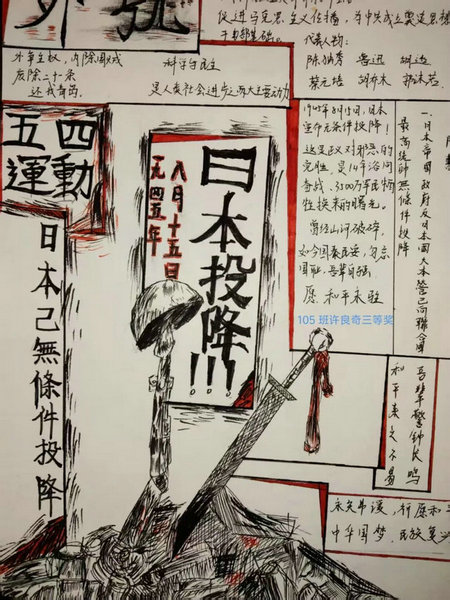 促进马克思主义在播，为中共成立奠定思想
干部基础。
代表人物：
陈独秀 鲁迅 胡适
蔡元培 胡乔木 郭沫若
外争主权，内除国贼
废除二十一条
还我青岛
科学与民主
是人类社会进步两大主要动力
五四
運動
日本己無條件投降
八月十五日
一九四五年
日本投降!!!
1945年8月15日，日本
宣布无条件投降！
这是正义对邪恶的
完胜，是14年浴血
奋战、3500万军民牺
牲换来的曙光。
曾经山河破碎，
如今国泰民安，勿忘
国耻，吾辈自强
愿和平永驻
一、日本帝國政府及日本國大本營已向聯合國
最高統帥無條件投降
105 班许良奇三等奖
吾辈警钟长鸣
和平来之不易
中华国梦，民族复兴